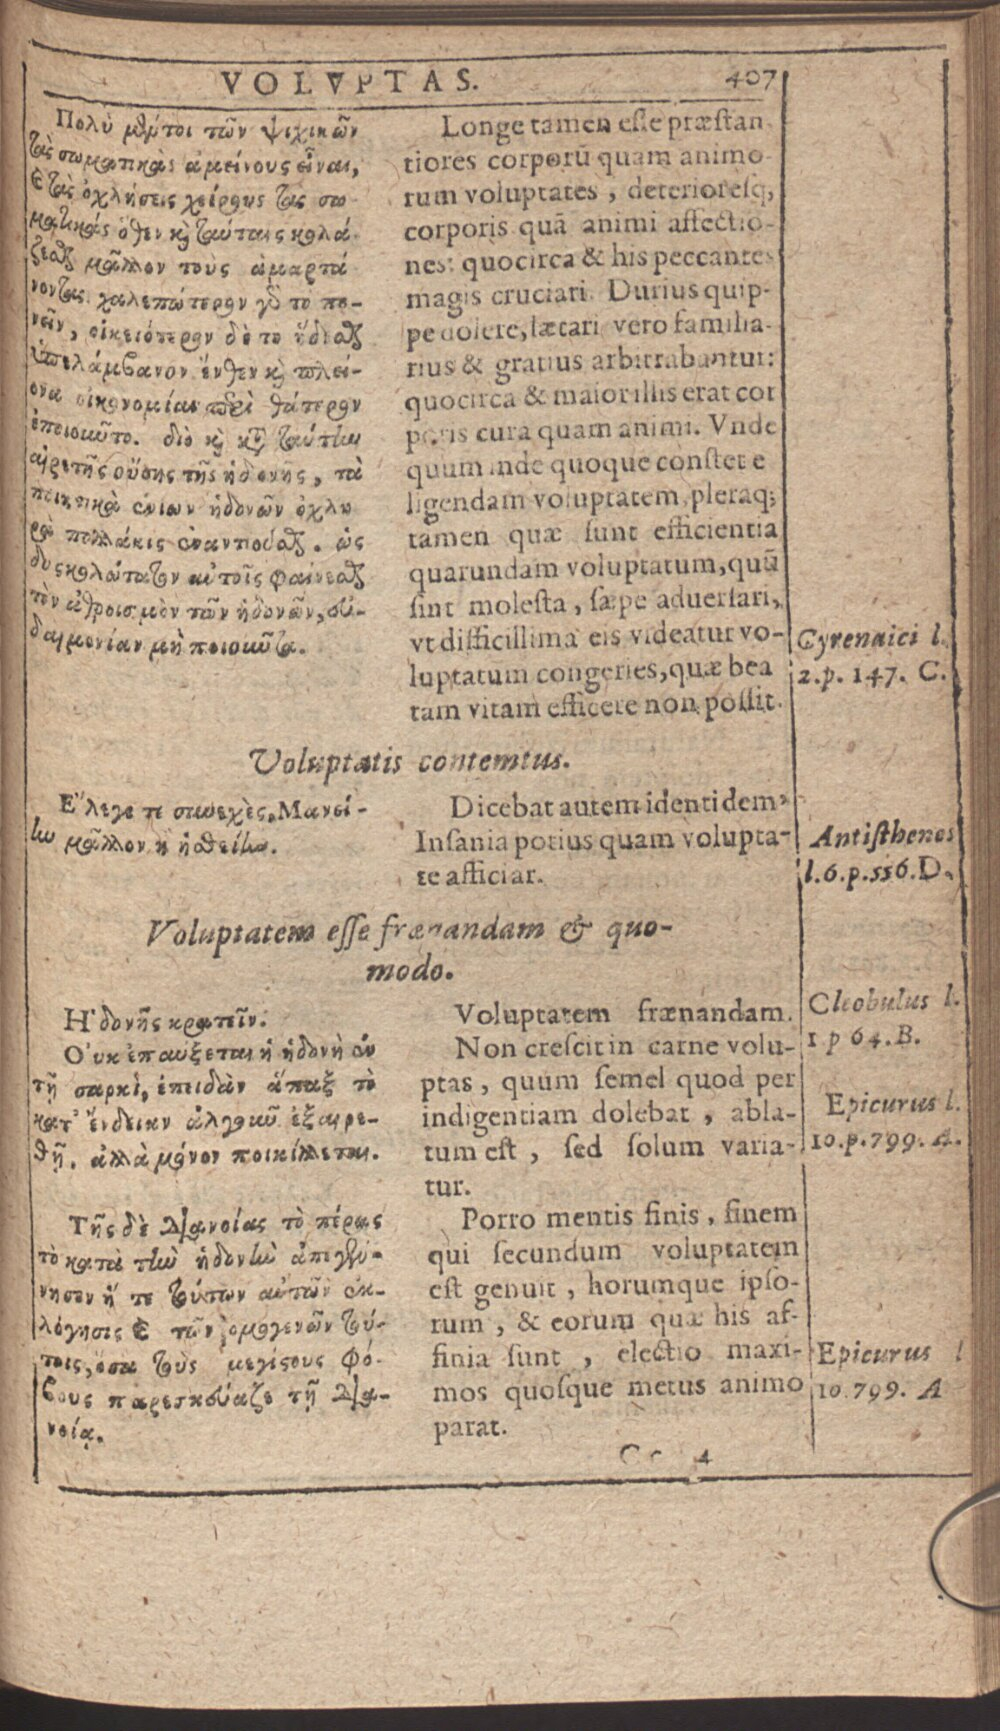 VOLVPTAS. 407
Πολὺ μέντοι τῶν ψυχικῶν
τὰς σωματικὰς ἀμείνους εἶναι,
ϗ τὰς ὀχλήσεις χείρους τὰς σω-
ματικάς ὅθεν ϗ ταύταις κολά-
ζεσθαι μᾶλλον τοὺς ἁμαρτά
νοντας. χαλεπώτερον γὸ τὸ πο-
νεῖν, οἰκειότερον δὲ τὸ ἥδεσθαι
ὑπελάμβανον ἔνθεν ϗ πλεί-
ονα οἰκονομίαν περὶ θάτερον
ἐποιοῦντο. διὸ ϗ κατ ταύτην
αἱρετῆς οὔσης τῆς ἡδονῆς, τὰ
ποιητικὰ ἐνίων ἡδονῶν ὀχλη
ρὰ πολλάκις ἐναντιοῦσθαι. ὡς
δυσκολώτατον αὐτοῖς φαίνεσθαι
τὸν ἀθροισμὸν τῶν ἡδονῶν, εὐ-
δαιμονίαν μὴ ποιοῦντα.
Longe tamen esse præstan
tiores corporũ quam animo
rum voluptates, deterioresq;
corporis quã animi affectio-
nes: quocirca & his peccantes
magis cruciari. Durius quip-
pe dolere, lætari vero familia-
rius & gratius arbitrabantur:
quocirca & maior illis erat cor
poris cura quam animi. Vnde
quum inde quoque constet e
ligendam voluptatem, pleraq;
tamen quæ sunt efficientia
quarundam voluptatum, quũ
sint molesta, sæpe aduersari,
vt difficillima eis videatur vo-
luptatum congeries, quæ bea
tam vitam efficere non possit.
Cyrenaici l.
2.p. 147. C.
Voluptatis contemtus.
Ἔλεγε τε συνεχὲς, Μανεί-
ην μᾶλλον ἢ ἡσθείην.
Dicebat autem identidem,
Insania potius quam volupta-
te afficiar.
Antisthenes
l.6.p.556.D.
Voluptatem esse frænandam & quo-
modo.
Ἡδονῆς κρατεῖν.
Οὐκ ἐπαύξεται ἡ ἡδονὴ ἐν
τῇ σαρκὶ, ἐπειδὰν ἅπαξ τὸ
κατ' ἔνδειαν ἀλγοῦν ἐξαιρε-
θῇ. ἀλλὰ μόνον ποικίλλεται.
Voluptatem frænandam.
Non crescit in carne volu-
ptas, quum semel quod per
indigentiam dolebat, abla-
tum est, sed solum varia-
tur.
Cleobulus l.
1 p 64. B.
Epicurus l.
10.p.799. A.
Τῆς δὲ διανοίας τὸ πέρας
τὸ κατὰ τὴν ἡδονὴν ἀπεγέν-
νησεν ἥ τε τούτων αὐτῶν ἐκ-
λόγησις ϗ τῶν ὁμογενῶν τού-
τοις, ὅσα τοὺς μεγίστους φό-
βους παρεσκεύαζε τῇ δια-
νοίᾳ.
Porro mentis finis, finem
qui secundum voluptatem
est genuit, horumque ipso-
rum, & eorum quæ his af-
finia sunt, electio maxi-
mos quosque metus animo
parat.
Epicurus l
10.799. A
4